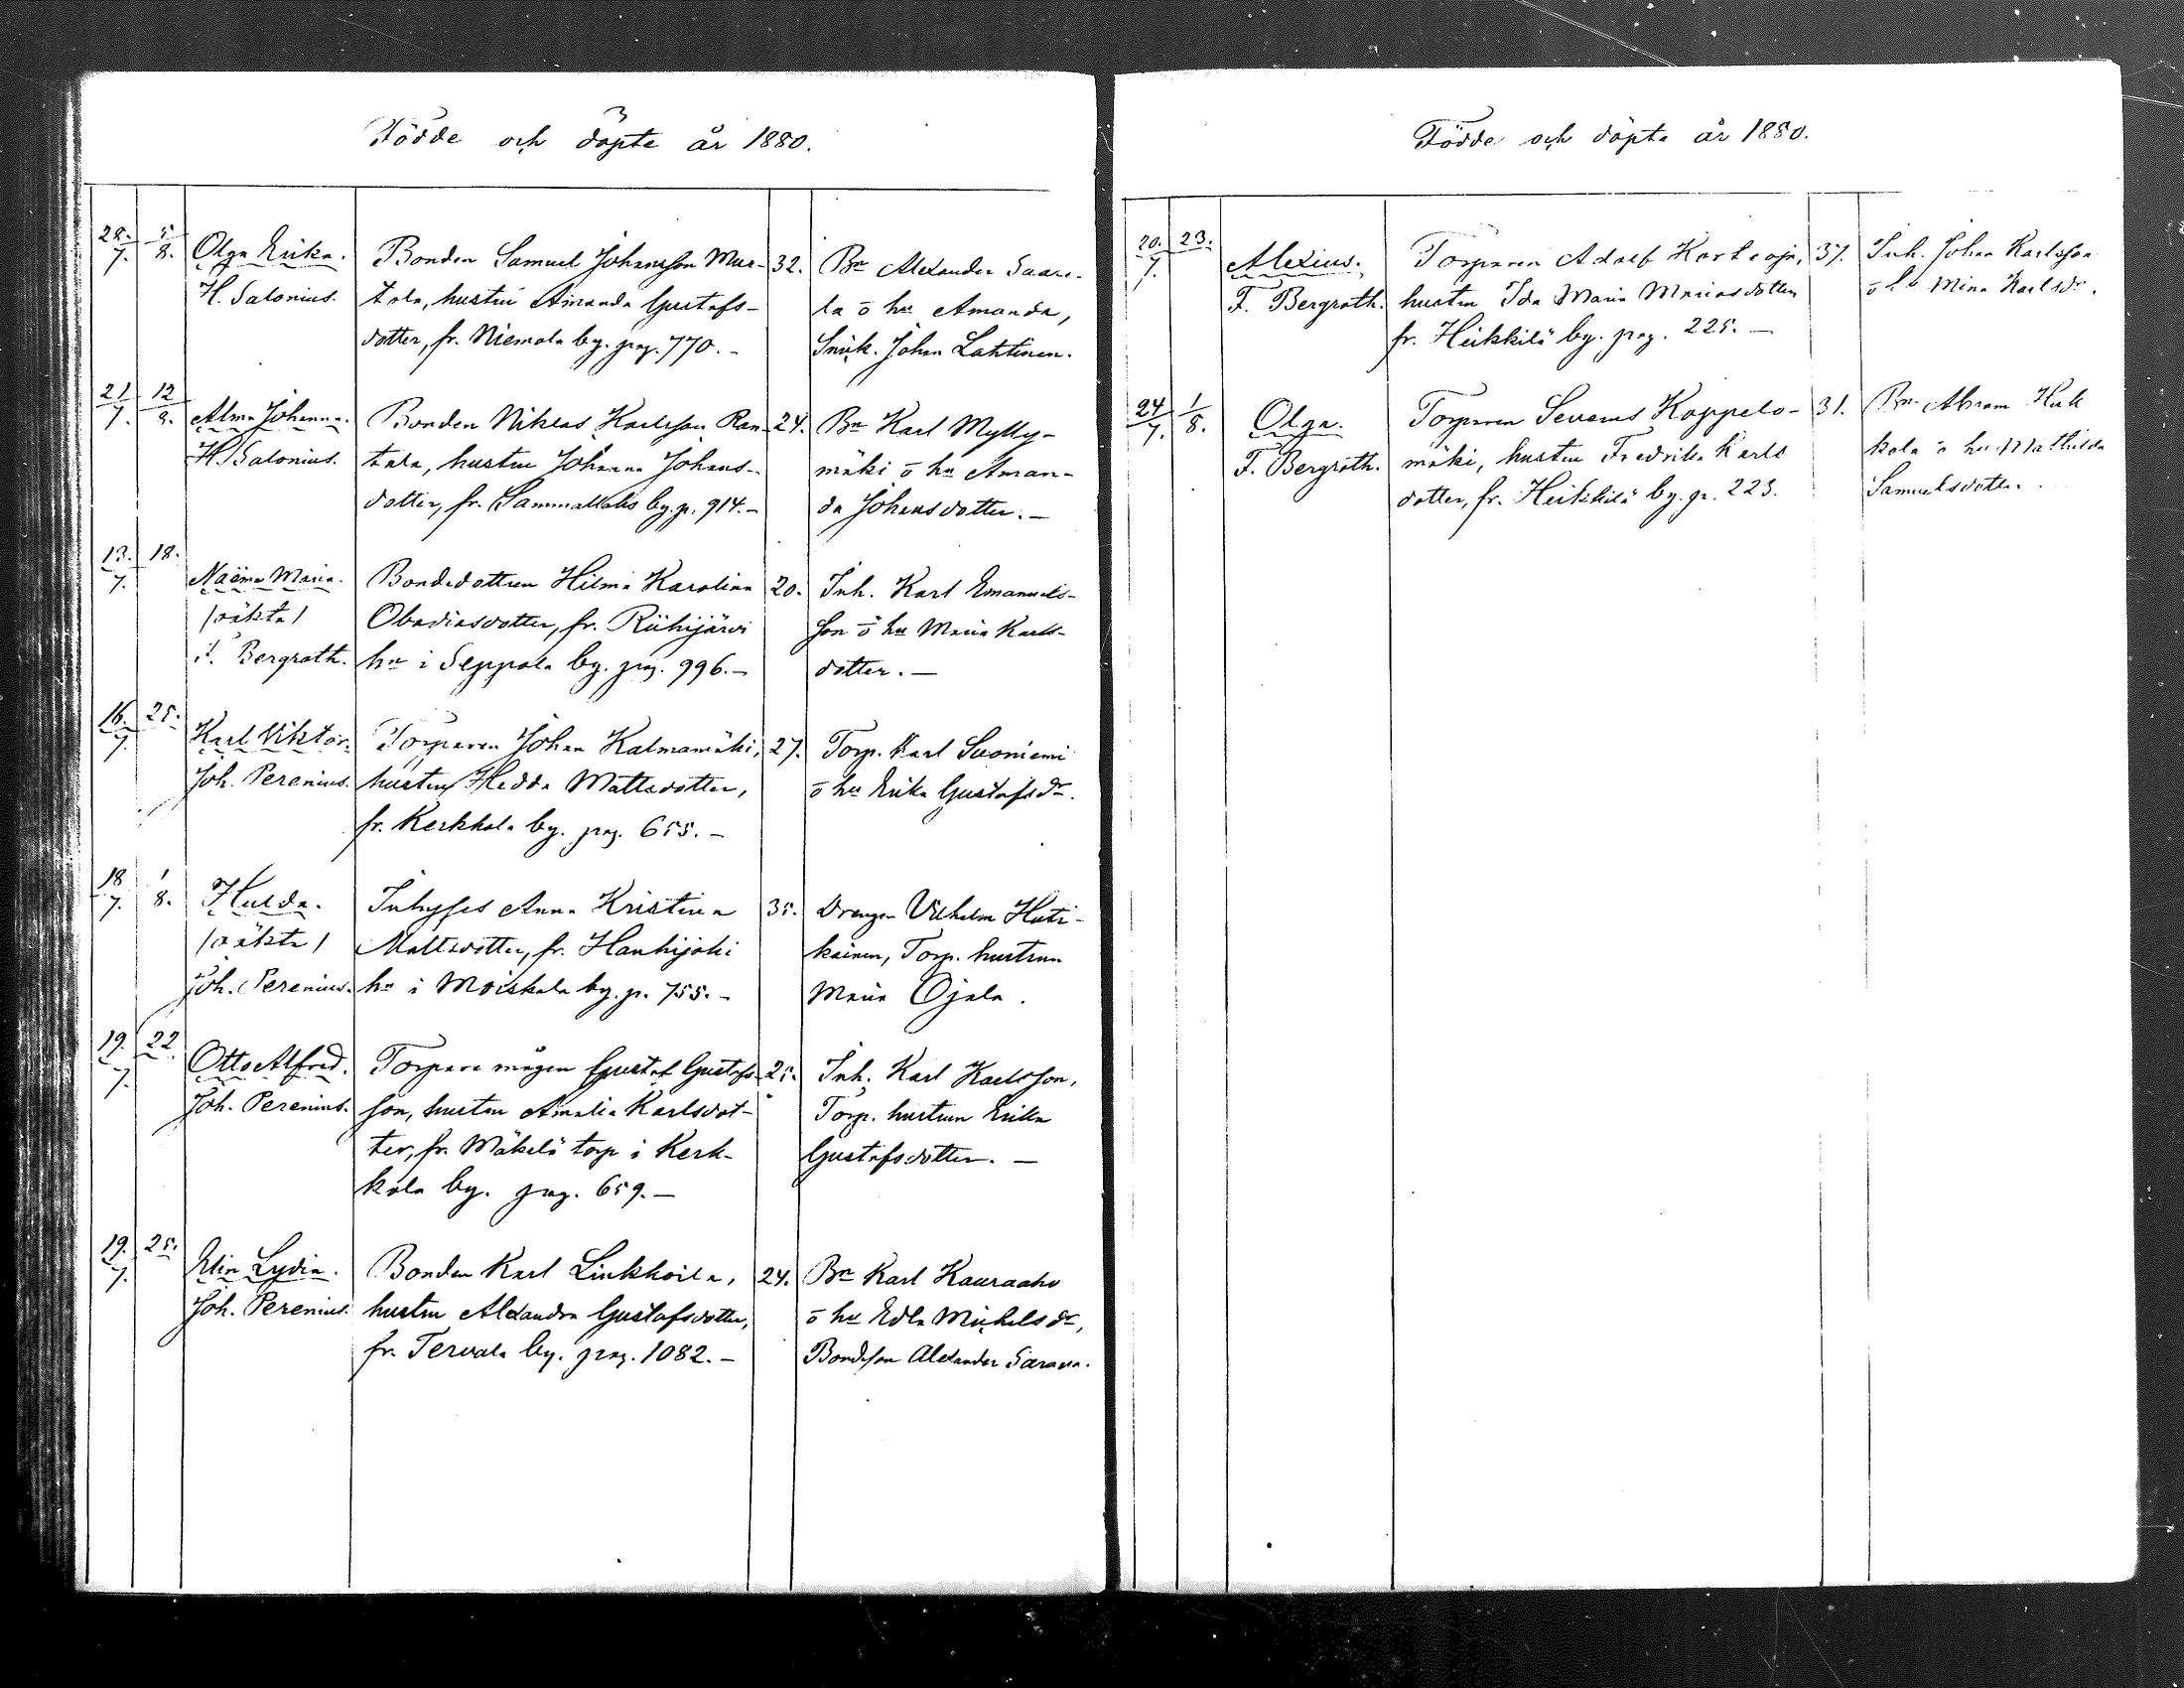 Födde och döpte år 1880.
28. 5 Olga Erika. Bonden Samuel Johansson Mur- 32. Bn Alexander Saare-
7. 8. H. Salonius. tola, hustru Amanda Gustafs- la o hu Amanda,
dotter, fr. Niemola by. pag. 770. Snick. Johan Lahtinen.
21 12 Alma Johanna. Bonden Niklas Karlsson Ran- 24. Bn Karl Mylly-
7. 8. H. Salonius. tala, hustru Johanna Johans- mäki o hu Aman-
dotter, fr. Sammallahs by. p. 914. da Johansdotter.
13. 18. Naëma Maria. Bondedottren Hilma Karolina 20. Inh. Karl Emanuels-
7. /oäkta/ Obadiasdotter, fr. Riihijärvi son o hu Maria Karls-
F. Bergroth. hn i Seppola by. pag. 996. dotter.
16. 25. Karl Viktor. Torparen Johan Kalmamäki, 27. Torp. Karl Suoniemi
7. Joh. Perenius. hustru Hedda Mattsdotter, o hu Erika Gustafsdr.
fr. Kerkkola by. pag. 655.
18 1 Hulda. Inhyses Anna Kristina 35. Drengen Vilhelm Huti-
7. 8. /oäkta/ Mattsdotter, fr. Hanhijoki kainen, Torp. hustrun
Joh. Perenius. hn i Moiskala by. p. 755. Maria Ojala.
19. 22. Otto Alfred. Torpare mågen Gustaf Gustafs- 25. Inh. Karl Karlsson,
7. Joh. Perenius. son, hustru Amalia Karlsdot- Torp. hustrun Erika
ter, fr. Mäkelä torp i Kerk- Gustafsdotter.
kola by. pag. 659.
19. 25. Elin Lydia. Bonden Karl Linkkoila, 24. Bn Karl Kauraaho
7. Joh. Perenius. hustru Alexandra Gustafsdotter, o hu Edla Mickelsdr,
fr. Tervala by. pag. 1082. Bondeson Alexander
Födde och döpte år 1880.
20. 23. Alexius. Torparen Adolf Korteoja, 37. Inh. Johan Karlsson
7. F. Bergroth. hustru Ida Maria Mariasdotter o hu Mina Karlsdr.
fr. Heikkilä by. pag. 225.
24 1 Olga. Torparen Severus Koppelo- 31. Bn Abram Huk
7. 8. F. Bergroth. mäki, hustru Fredrika Karls kala o hu Mathilda
dotter, fr. Heikkilä by. p. 223. Samuelsdotter.